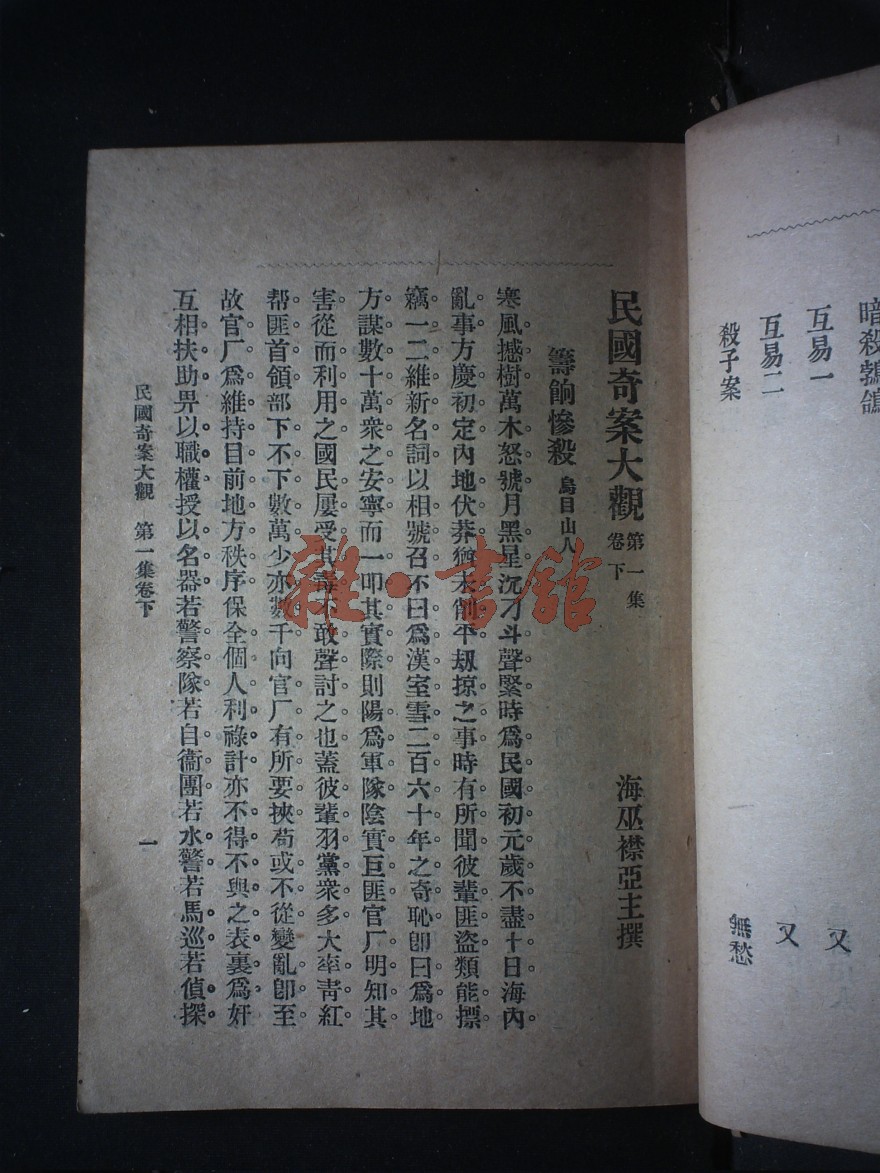 暗殺鵓鴿
互易一　又
互易二　又
殺子案　無愁
民國奇案大觀 第一集 卷下　海巫襟亞主撰
籌餉慘殺　烏目山人
寒風撼樹萬木怒號月黑星沉刁斗聲緊時爲民國初元歲不盡十日海內
亂事方慶初定內地伏莽猶未削平刼掠之事時有所聞彼輩匪盜類能摽
竊一二維新名詞以相號召不曰爲漢室雪二百六十年之奇恥卽曰爲地
方謀數十萬衆之安寧而一叩其實際則陽爲軍隊陰實巨匪官厂明知其
害從而利用之國民屢受其毒不敢聲討之也蓋彼輩羽黨衆多大率靑紅
帮匪首領部下不下數萬少亦數千向官厂有所要挾苟或不從變亂卽至
故官厂爲維持目前地方秩序保全個人利祿計亦不得不與之表裏爲奸
互相扶助畀以職權授以名器若警察隊若自衞團若水警若馬巡若偵探
民國奇案大觀　第一集卷下　一
雜·書館